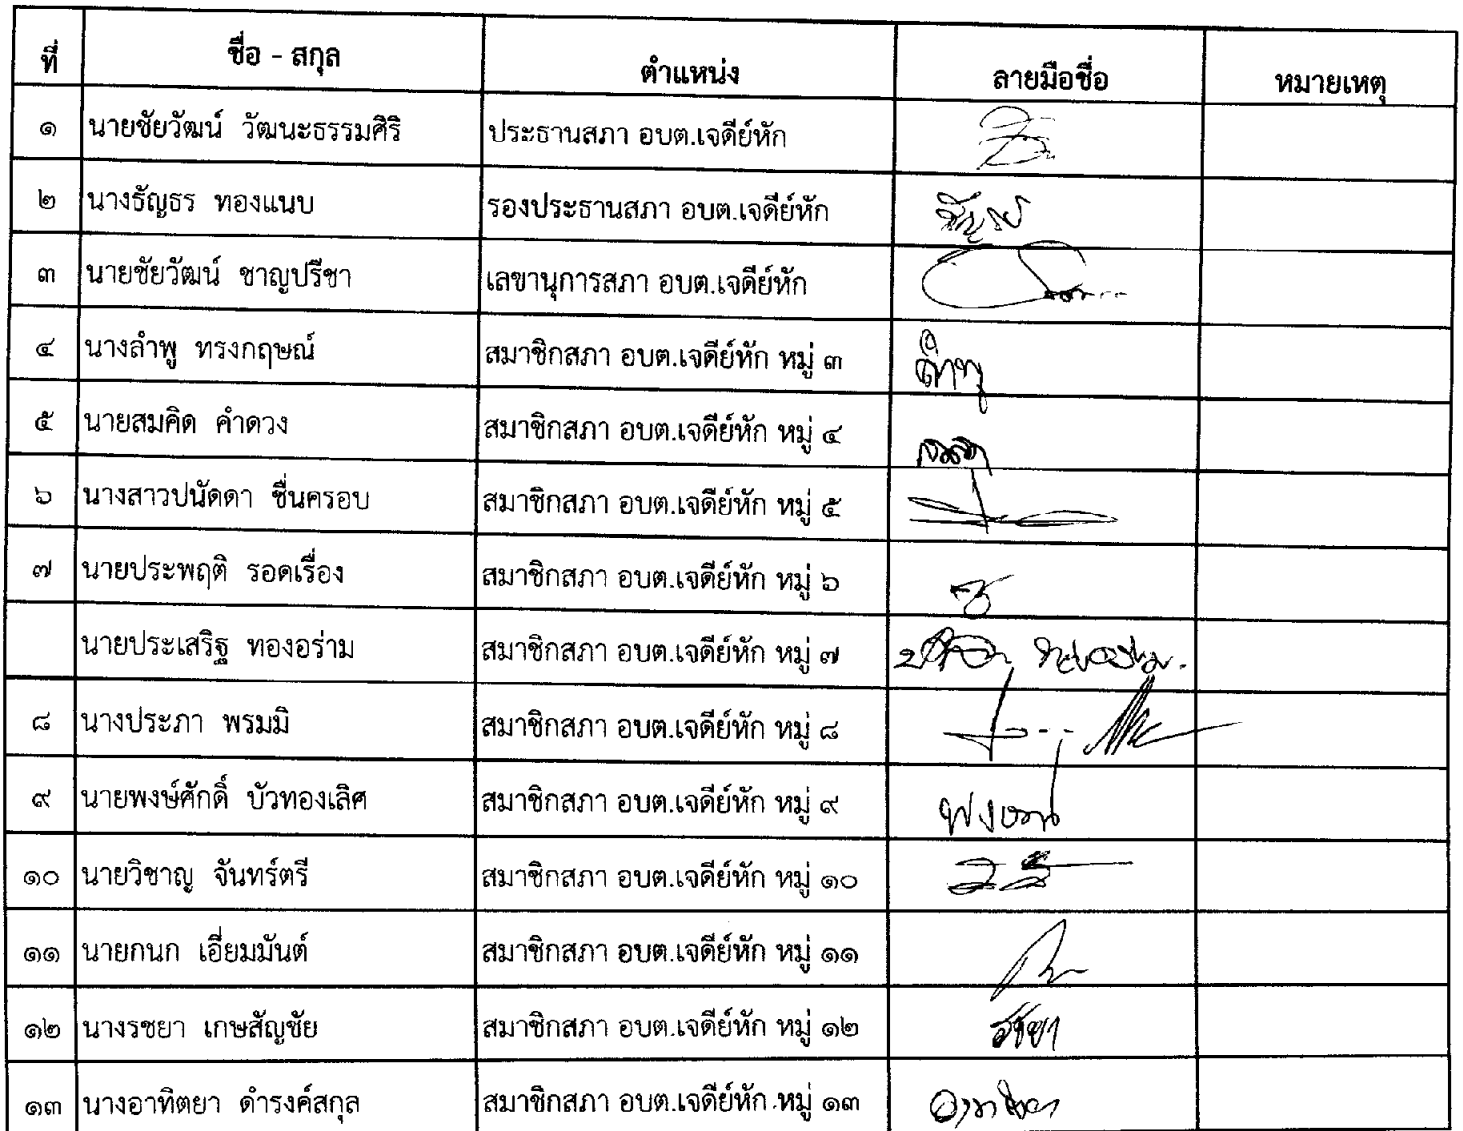 ที่ ชื่อ - สกุล ตำแหน่ง ลายมือชื่อ หมายเหตุ
๑ นายชัยวัฒน์ วัฒนะธรรมศิริ ประธานสภา อบต.เจดีย์หัก
๒ นางธัญธร ทองแนบ รองประธานสภา อบต.เจดีย์หัก
๓ นายชัยวัฒน์ ชาญปรีชา เลขานุการสภา อบต.เจดีย์หัก
๔ นางลำพู ทรงกฤษณ์ สมาชิกสภา อบต.เจดีย์หัก หมู่ ๓ ลำพู
๕ นายสมคิด คำดวง สมาชิกสภา อบต.เจดีย์หัก หมู่ ๔
๖ นางสาวปนัดดา ชื่นครอบ สมาชิกสภา อบต.เจดีย์หัก หมู่ ๕
๗ นายประพฤติ รอดเรื่อง สมาชิกสภา อบต.เจดีย์หัก หมู่ ๖
นายประเสริฐ ทองอร่าม สมาชิกสภา อบต.เจดีย์หัก หมู่ ๗
๘ นางประภา พรมมิ สมาชิกสภา อบต.เจดีย์หัก หมู่ ๘
๙ นายพงษ์ศักดิ์ บัวทองเลิศ สมาชิกสภา อบต.เจดีย์หัก หมู่ ๙
๑๐ นายวิชาญ จันทร์ตรี สมาชิกสภา อบต.เจดีย์หัก หมู่ ๑๐
๑๑ นายกนก เอี่ยมมันต์ สมาชิกสภา อบต.เจดีย์หัก หมู่ ๑๑
๑๒ นางรชยา เกษสัญชัย สมาชิกสภา อบต.เจดีย์หัก หมู่ ๑๒ รชยา
๑๓ นางอาทิตยา ดำรงค์สกุล สมาชิกสภา อบต.เจดีย์หัก หมู่ ๑๓ อาทิตยา